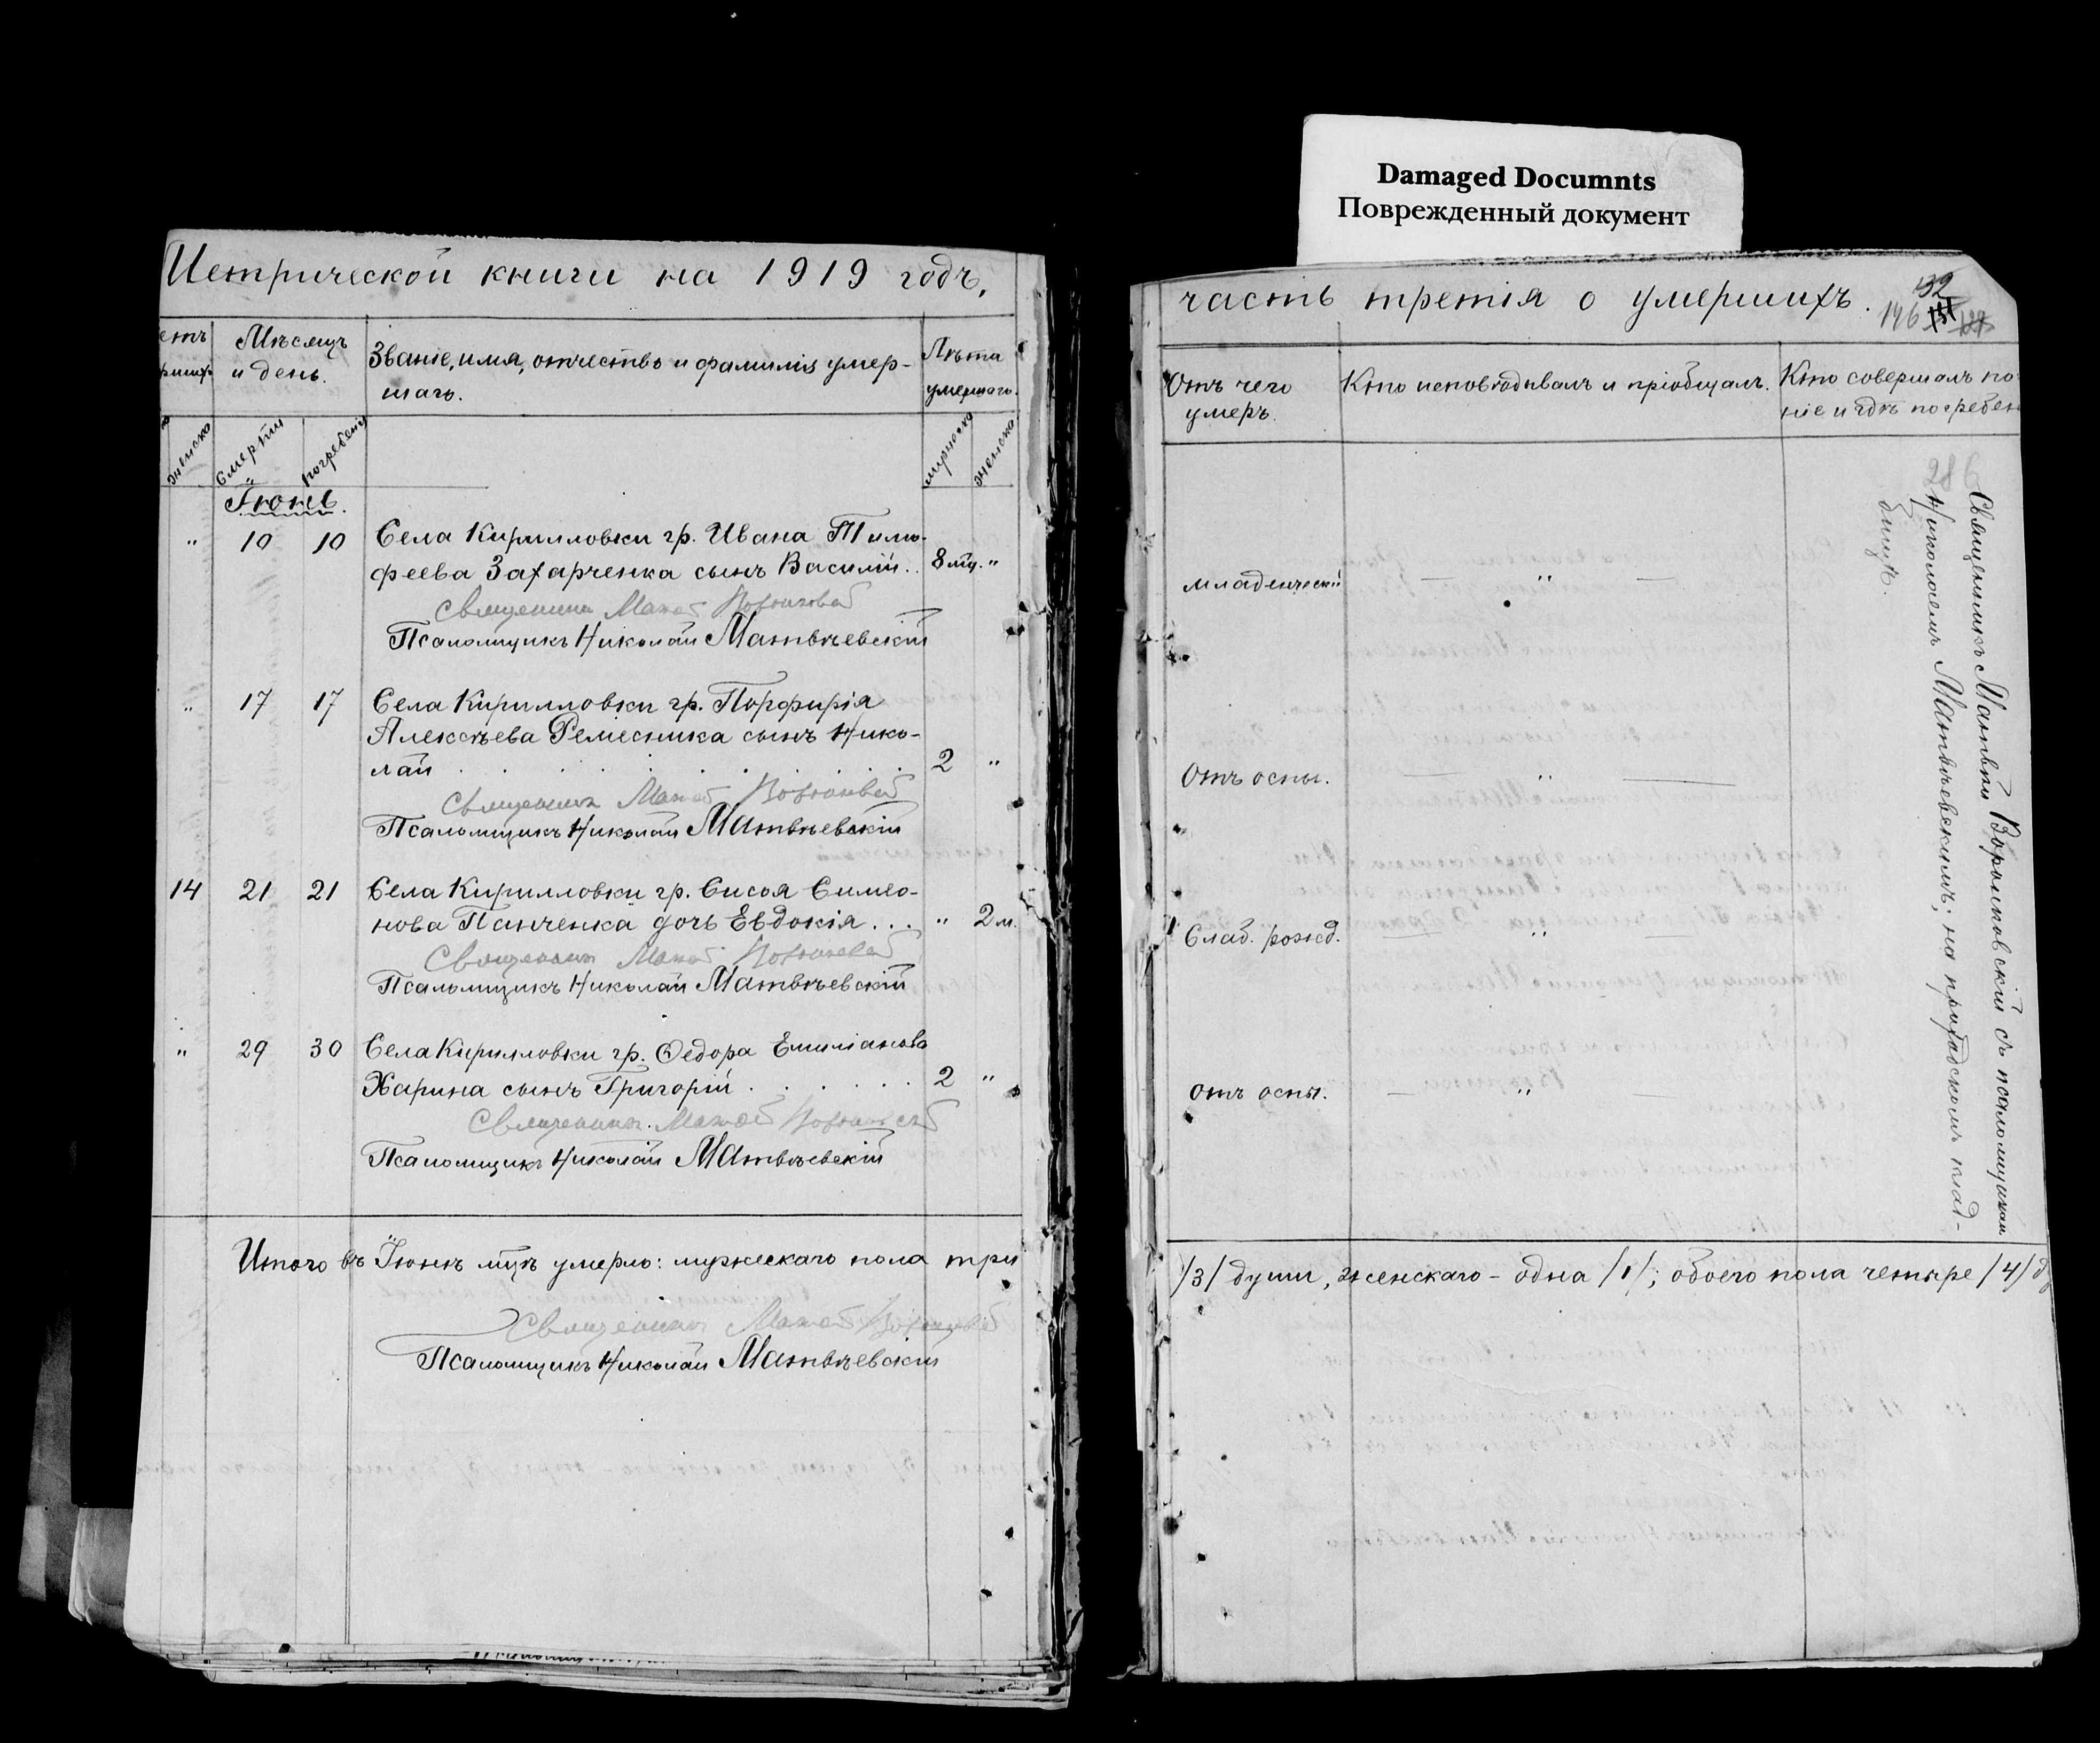 Damaged Documnts
Поврежденный документ
Метрической книги на 1919 годъ,
етъ
Мѣсяцъ
и день.
Званіе, имя, отчество и фамилія умер-
шаго.
Лѣта
умершаго.
женско
смерти
погребенія
мужеско
женско
Іюнь.
" 10 10 Села Кирилловки гр. Ивана Тимо-
феева Захарченка сынъ Василій.. 8 мц. "
Священникъ Матвей
Псаломщикъ Николай Матвѣевскій
" 17 17 Села Кирилловки гр. Порфирія
Алексѣева Ремесника сынъ Нико-
лай . . . . . . . 2 "
Священникъ Матвей
Псаломщикъ Николай Матвѣевскій
14 21 21 Села Кирилловки гр. Сисоя Симео-
нова Панченка дочь Евдокія . . . " 2 м.
Священникъ Матвей
Псаломщикъ Николай Матвѣевскій
" 29 30 Села Кирилловки гр. Ѳедора Емиліанова
Харина сынъ Григорій . . . . . . 2 "
Священникъ Матвей
Псаломщикъ Николай Матвѣевскій
Итого въ Іюнѣ мцѣ умерло: мужескаго пола три
Священникъ Матвей
Псаломщикъ Николай Матвѣевскій
часть третія о умершихъ.
132
146
Отъ чего
умеръ.
Кто исповѣдывалъ и пріобщалъ.
Кто совершалъ по
ніе и гдѣ погребен
младенческій — " —
Отъ оспы. — " —
Слаб. рожд. — " —
отъ оспы. — " —
Священникъ Матвѣй Воронковскій съ псаломщикомъ
Николаемъ Матвѣевскимъ; на приходскомъ клад-
бищѣ.
/3/ души, женскаго - одна /1/; обоего пола четыре /4/ д